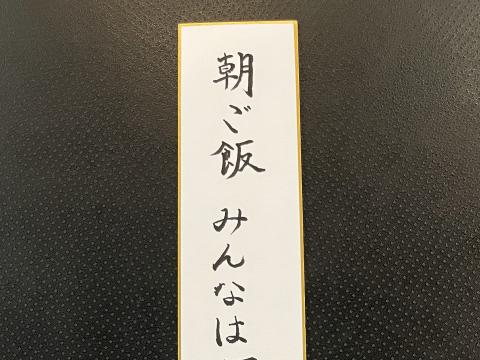 朝ご飯 みんなは